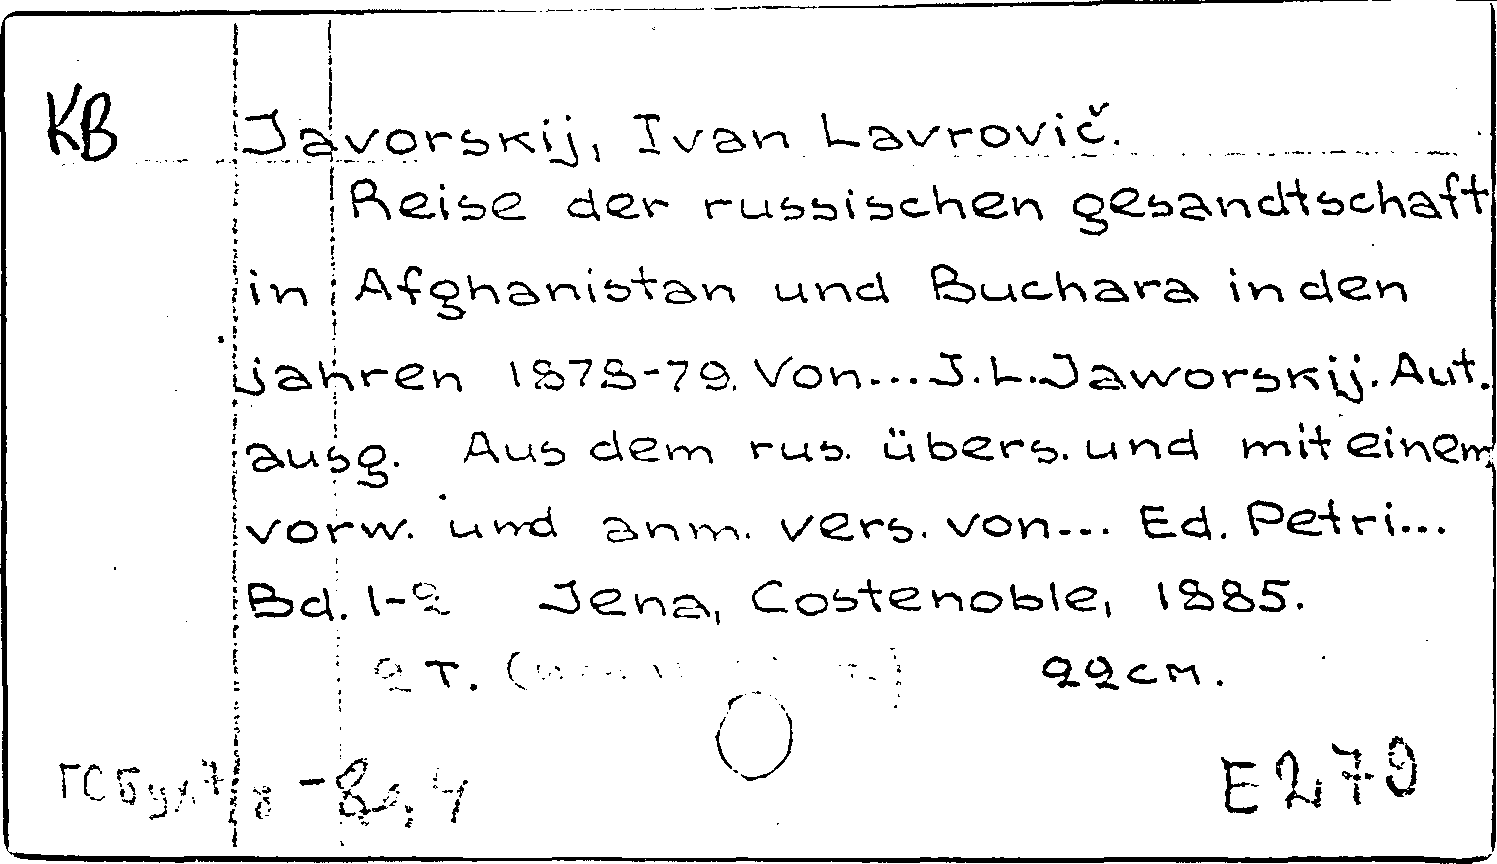 KB
Javorskij, Ivan Lavrovič.
Reise der russischen gesandtschaft
in Afghanistan und Buchara in den
jahren 1878-79. Von... J.L. Jaworskij. Aut.
ausg. Aus dem rus. übers. und mit einem
vorw. und anm. vers. von... Ed. Petri...
Bd. 1-2 Jena, Costenoble, 1885.
2 т. 22 см.
E 279